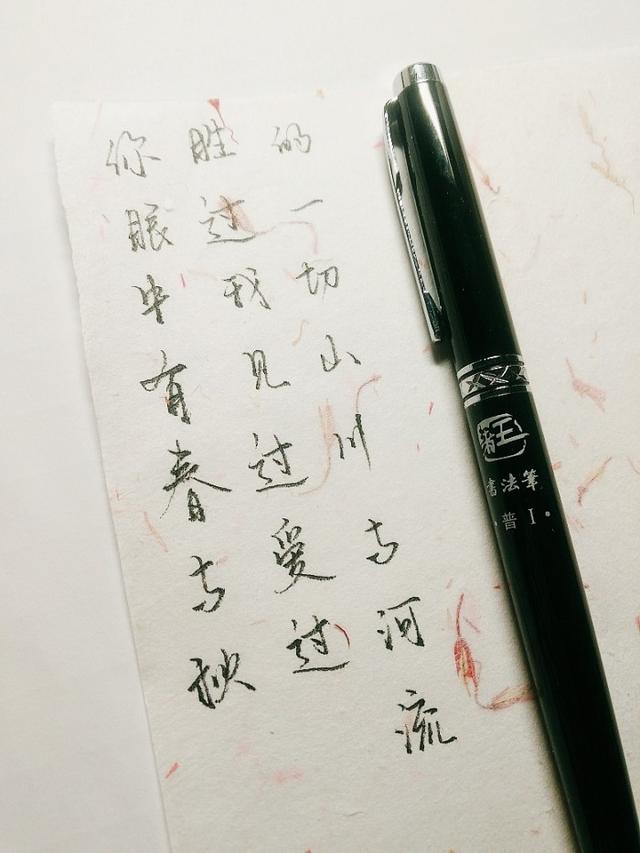 你眼中有春与秋
胜过我见过爱过
的一切山川与河流
书法笔
·普I·